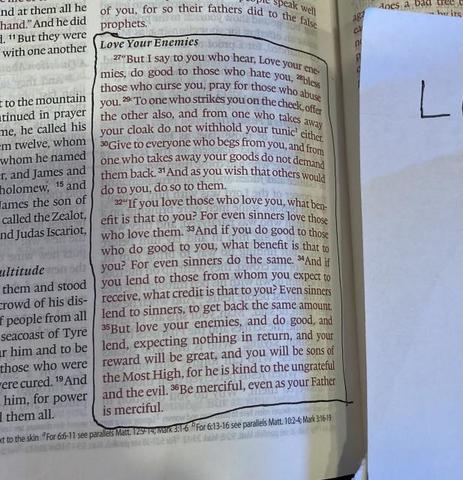 at them all he
hand." And he did
11 But they were
with one another
t to the mountain
tinued in prayer
me, he called his
em twelve, whom
whom he named
er, and James and
holomew, 15 and
James the son of
called the Zealot,
nd Judas Iscariot,
ultitude
them and stood
crowd of his dis-
f people from all
seacoast of Tyre
ar him and to be
those who were
ere cured. 19 And
him, for power
l them all.
people speak well
of you, for so their fathers did to the false
prophets.
Love Your Enemies
27 "But I say to you who hear, Love your ene-
mies, do good to those who hate you, 28 bless
those who curse you, pray for those who abuse
you. 29 To one who strikes you on the cheek, offer
the other also, and from one who takes away
your cloak do not withhold your tunic either.
30 Give to everyone who begs from you, and from
one who takes away your goods do not demand
them back. 31 And as you wish that others would
do to you, do so to them.
32 "If you love those who love you, what ben-
efit is that to you? For even sinners love those
who love them. 33 And if you do good to those
who do good to you, what benefit is that to
you? For even sinners do the same. 34 And if
you lend to those from whom you expect to
receive, what credit is that to you? Even sinners
lend to sinners, to get back the same amount.
35 But love your enemies, and do good, and
lend, expecting nothing in return, and your
reward will be great, and you will be sons of
the Most High, for he is kind to the ungrateful
and the evil. 36 Be merciful, even as your Father
is merciful.
xt to the skin For 6:6-11 see parallels Matt. 12:9-14; Mark 3:1-6 For 6:13-16 see parallels Matt. 10:2-4; Mark 3:16-19
does a bad tree
L